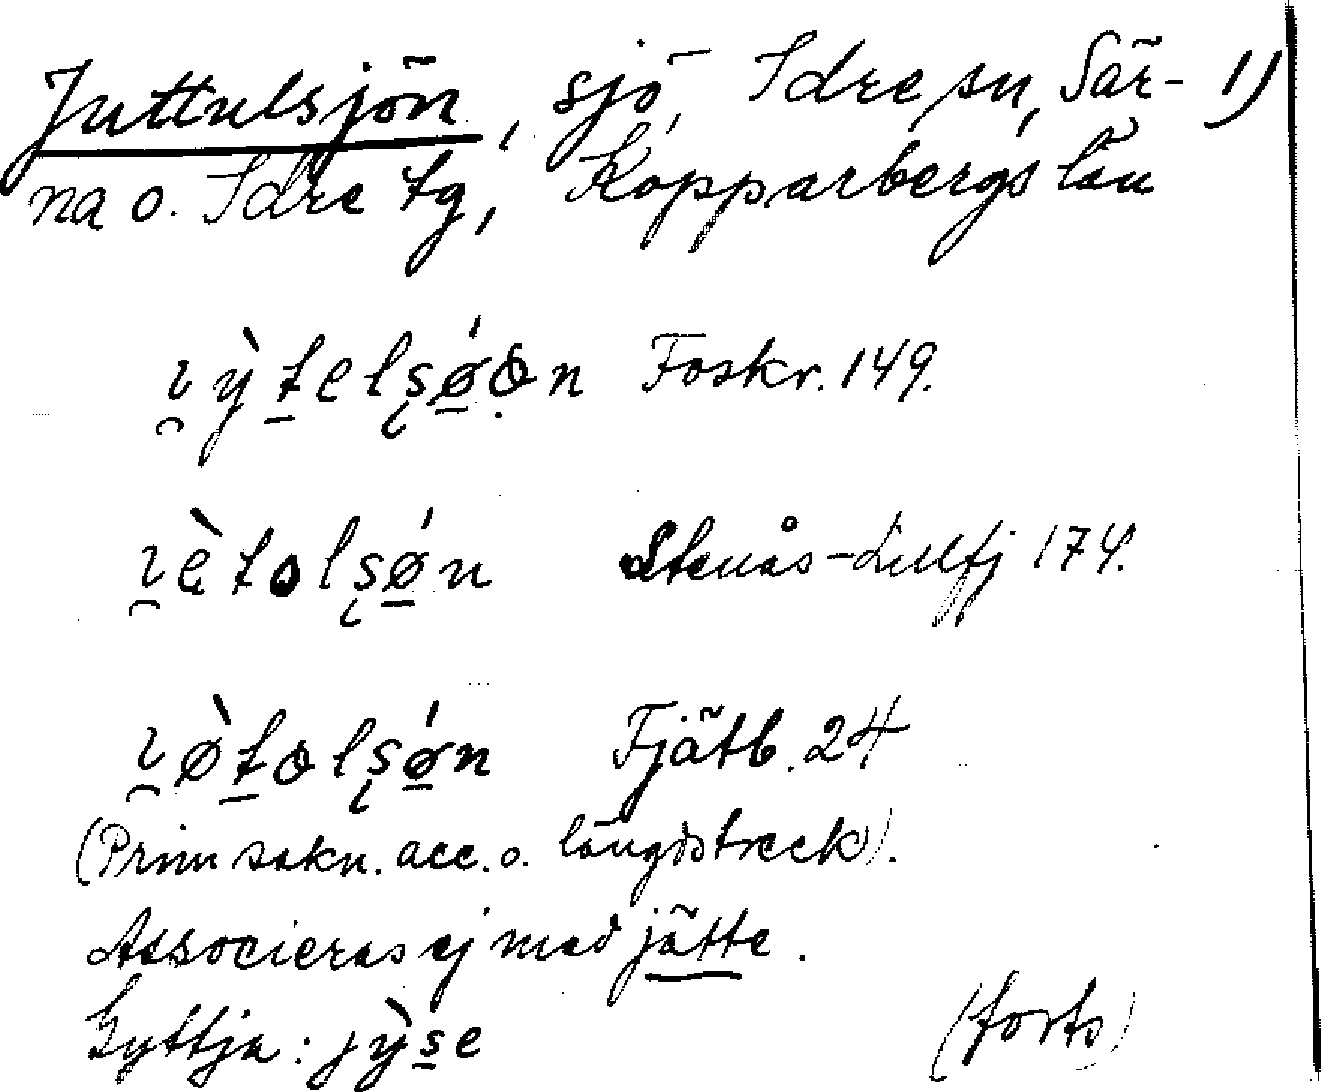 Juttulsjön, sjö, Idre sn, Sär- 1)
na o. Idre tg, Kopparbergs län
ı̯ỳt̠elʂǿ̠ən Foskr. 149.
ı̯ètolʂǿ̠n Stenås-Lillfj 174.
ı̯ø̀t̠olʂǿ̠n Fjätb. 24
(Prim sakn. acc. o. längdstreck).
Associeras ej med jätte.
Gyttja: jỳs̠e (forts)